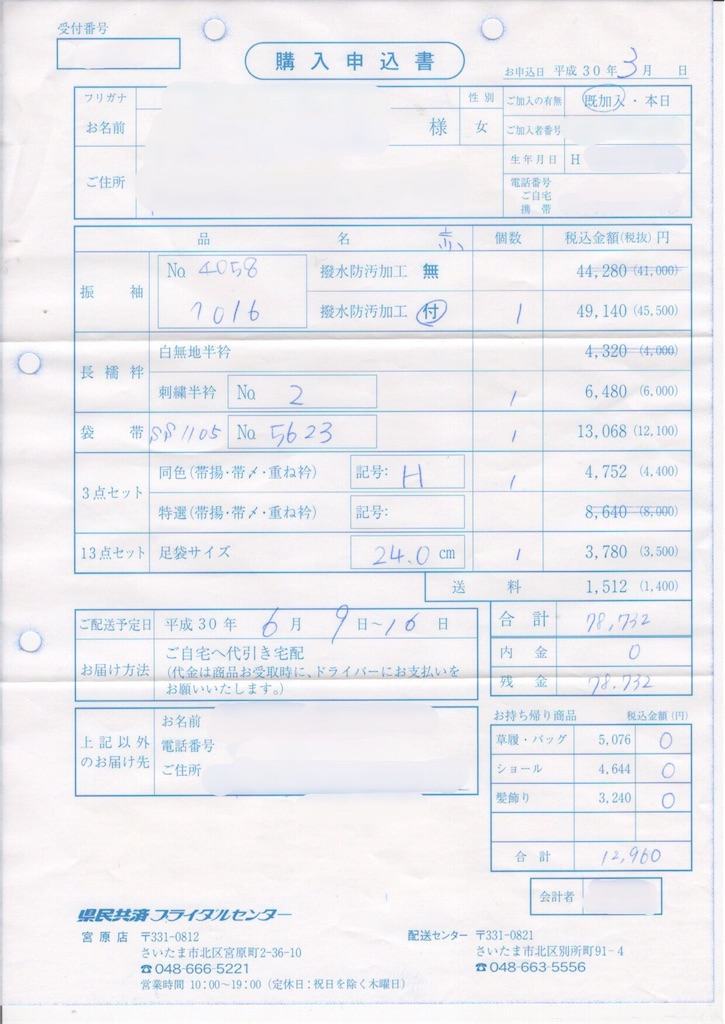 受付番号
購入申込書
お申込日 平成30年3月 日
フリガナ
お名前 様
性別 女
ご加入の有無 既加入・本日
ご加入者番号
生年月日 H
ご住所
電話番号
ご自宅
携帯
品名 赤 個数 税込金額(税抜)円
振袖 No. 4058 撥水防汚加工 無 44,280 (41,000)
7016 撥水防汚加工 付 1 49,140 (45,500)
長襦袢 白無地半衿 4,320 (4,000)
刺繍半衿 No. 2 1 6,480 (6,000)
袋帯 SS1105 No. 5623 1 13,068 (12,100)
3点セット 同色(帯揚・帯〆・重ね衿) 記号: H 1 4,752 (4,400)
特選(帯揚・帯〆・重ね衿) 記号: 8,640 (8,000)
13点セット 足袋サイズ 24.0 cm 1 3,780 (3,500)
送料 1,512 (1,400)
ご配送予定日 平成30年 6月 9日~16日
お届け方法 ご自宅へ代引き宅配
(代金は商品お受取時に、ドライバーにお支払いを
お願いいたします。)
合計 78,732
内金 0
残金 78,732
上記以外
のお届け先
お名前
電話番号
ご住所
お持ち帰り商品 税込金額(円)
草履・バッグ 5,076 0
ショール 4,644 0
髪飾り 3,240 0
合計 12,960
会計者
県民共済ブライダルセンター
宮原店 〒331-0812
さいたま市北区宮原町2-36-10
☎048-666-5221
営業時間 10:00~19:00 (定休日:祝日を除く木曜日)
配送センター 〒331-0821
さいたま市北区別所町91-4
☎048-663-5556